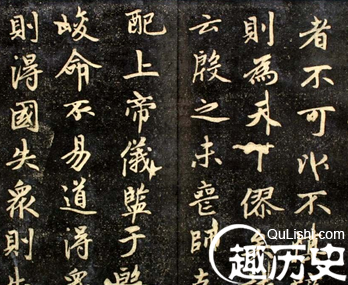 者不可以不慎
則為天下僇矣
云殷之未喪師克
配上帝儀監于殷
峻命不易道得衆
則得國失衆則失
QuLishi.com
趣历史